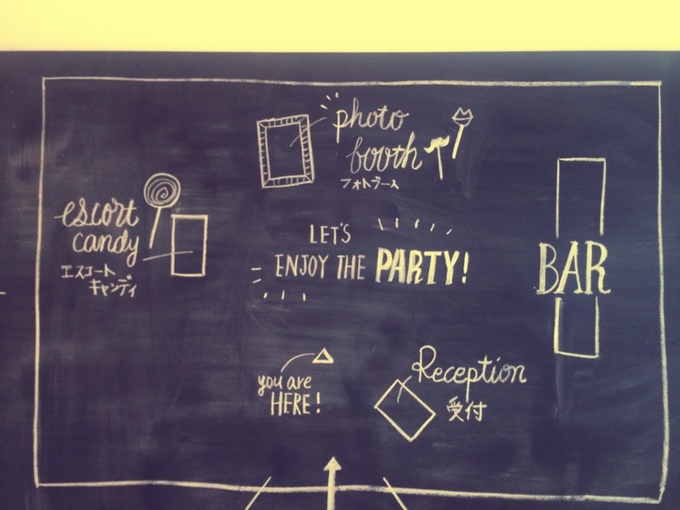 photo
booth
フォトブース
escort
candy
エスコート
キャンディ
LET'S
ENJOY THE PARTY!
BAR
you are
HERE!
Reception
受付